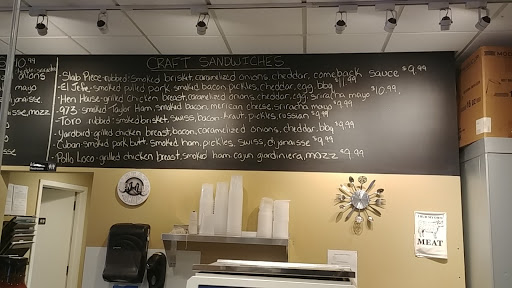 CRAFT SANDWICHES
-Slab Piece-rubbed smoked brisket, caramelized onions, cheddar, comeback sauce $9.99
-El Jefe-smoked pulled pork, smoked bacon, pickles, cheddar, egg, bbq $11.99
-Hen House-grilled chicken breast, caramelized onions, cheddar, egg, sriracha mayo $10.99
-973-smoked Taylor Ham, smoked bacon, american cheese, sriracha mayo $9.99
-Toro-rubbed smoked brisket, swiss, bacon kraut, pickles, russian $9.99
-Yardbird-grilled chicken breast, bacon, caramelized onions, cheddar, bbq $9.99
-Cuban-smoked pork butt, smoked ham, pickles, swiss, dijonaisse $9.99
-Pollo Loco-grilled chicken breast, smoked ham, cajun giardiniera, mozz $9.99
10.99
onions
mayo
MEAT